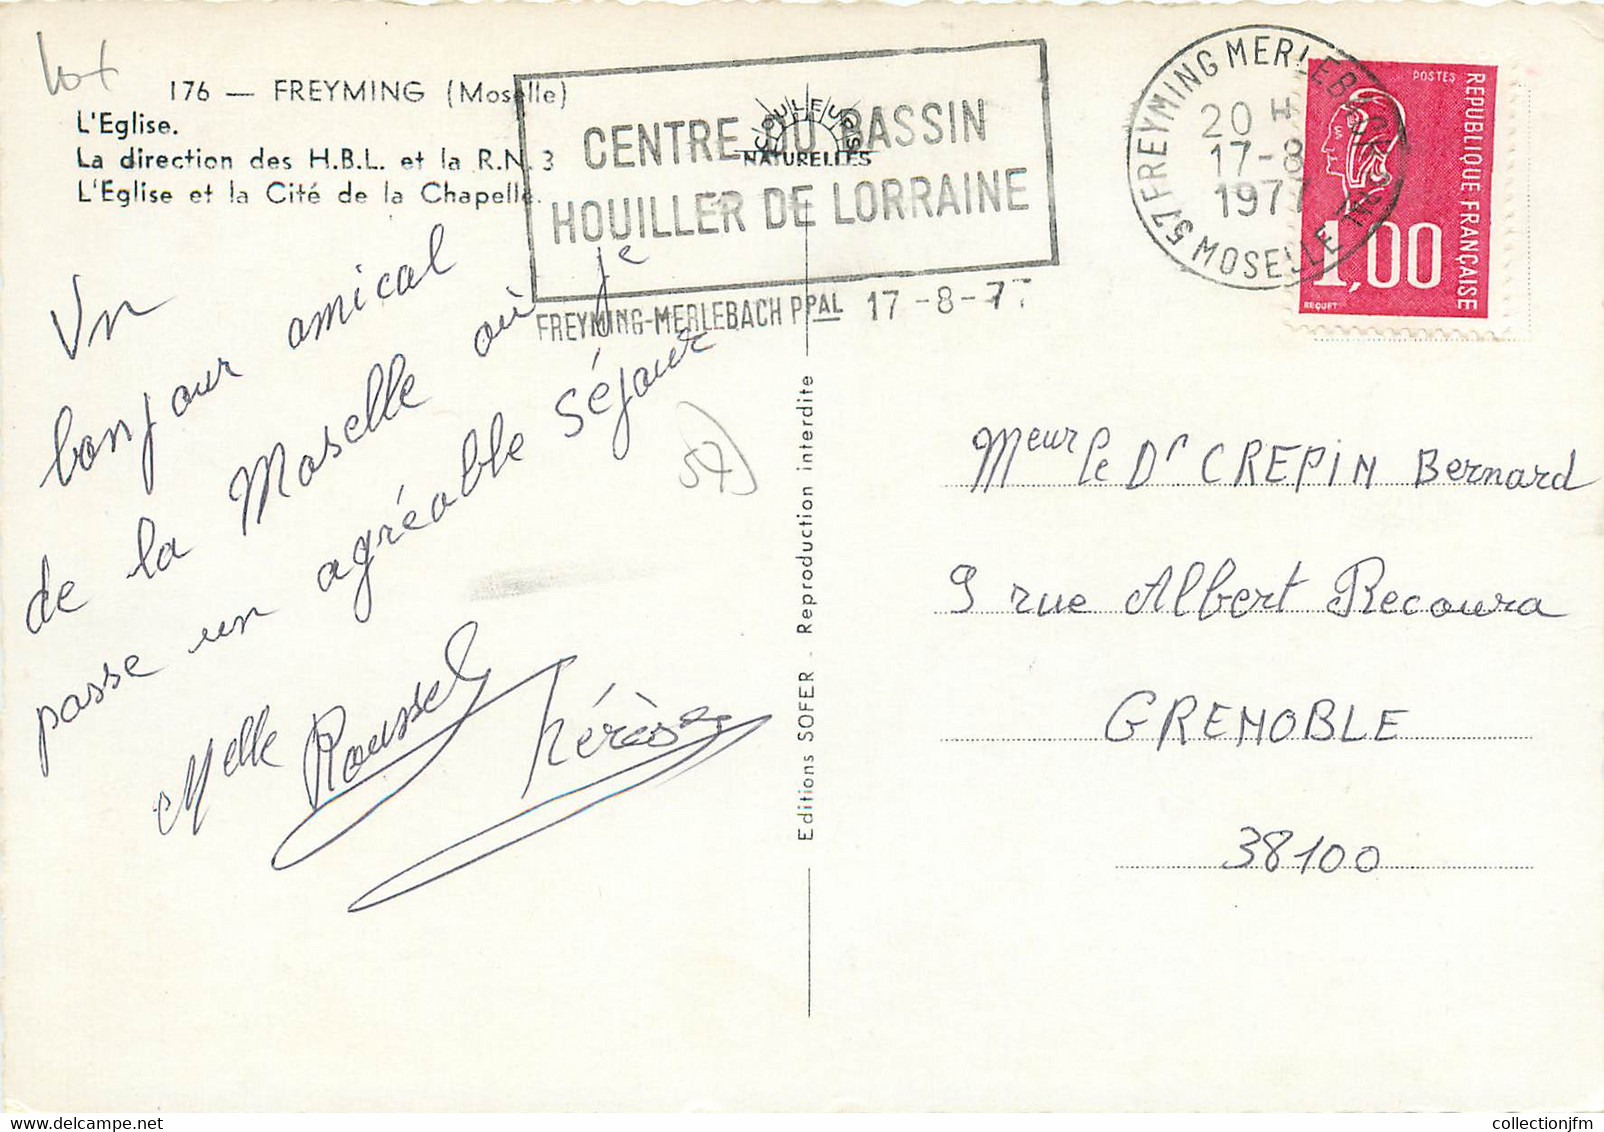 lot
176 — FREYMING (Moselle)
L'Eglise.
La direction des H.B.L. et la R.N. 3
L'Eglise et la Cité de la Chapelle.
COULEURS
NATURELLES
CENTRE DU BASSIN
HOUILLER DE LORRAINE
FREYMING-MERLEBACH PPAL 17-8-77
57 FREYMING MERLEBACH PPAL
20 H
17-8
1977
MOSELLE
POSTES
REPUBLIQUE FRANÇAISE
1,00
BEQUET
Un
bonjour amical
de la Moselle où je
passe un agréable séjour
Melle Roussel Thérèse
57)
Editions SOFER - Reproduction interdite
Meur le Dr CREPIN Bernard
9 rue Albert Recoura
GRENOBLE
38100
collectionjfm